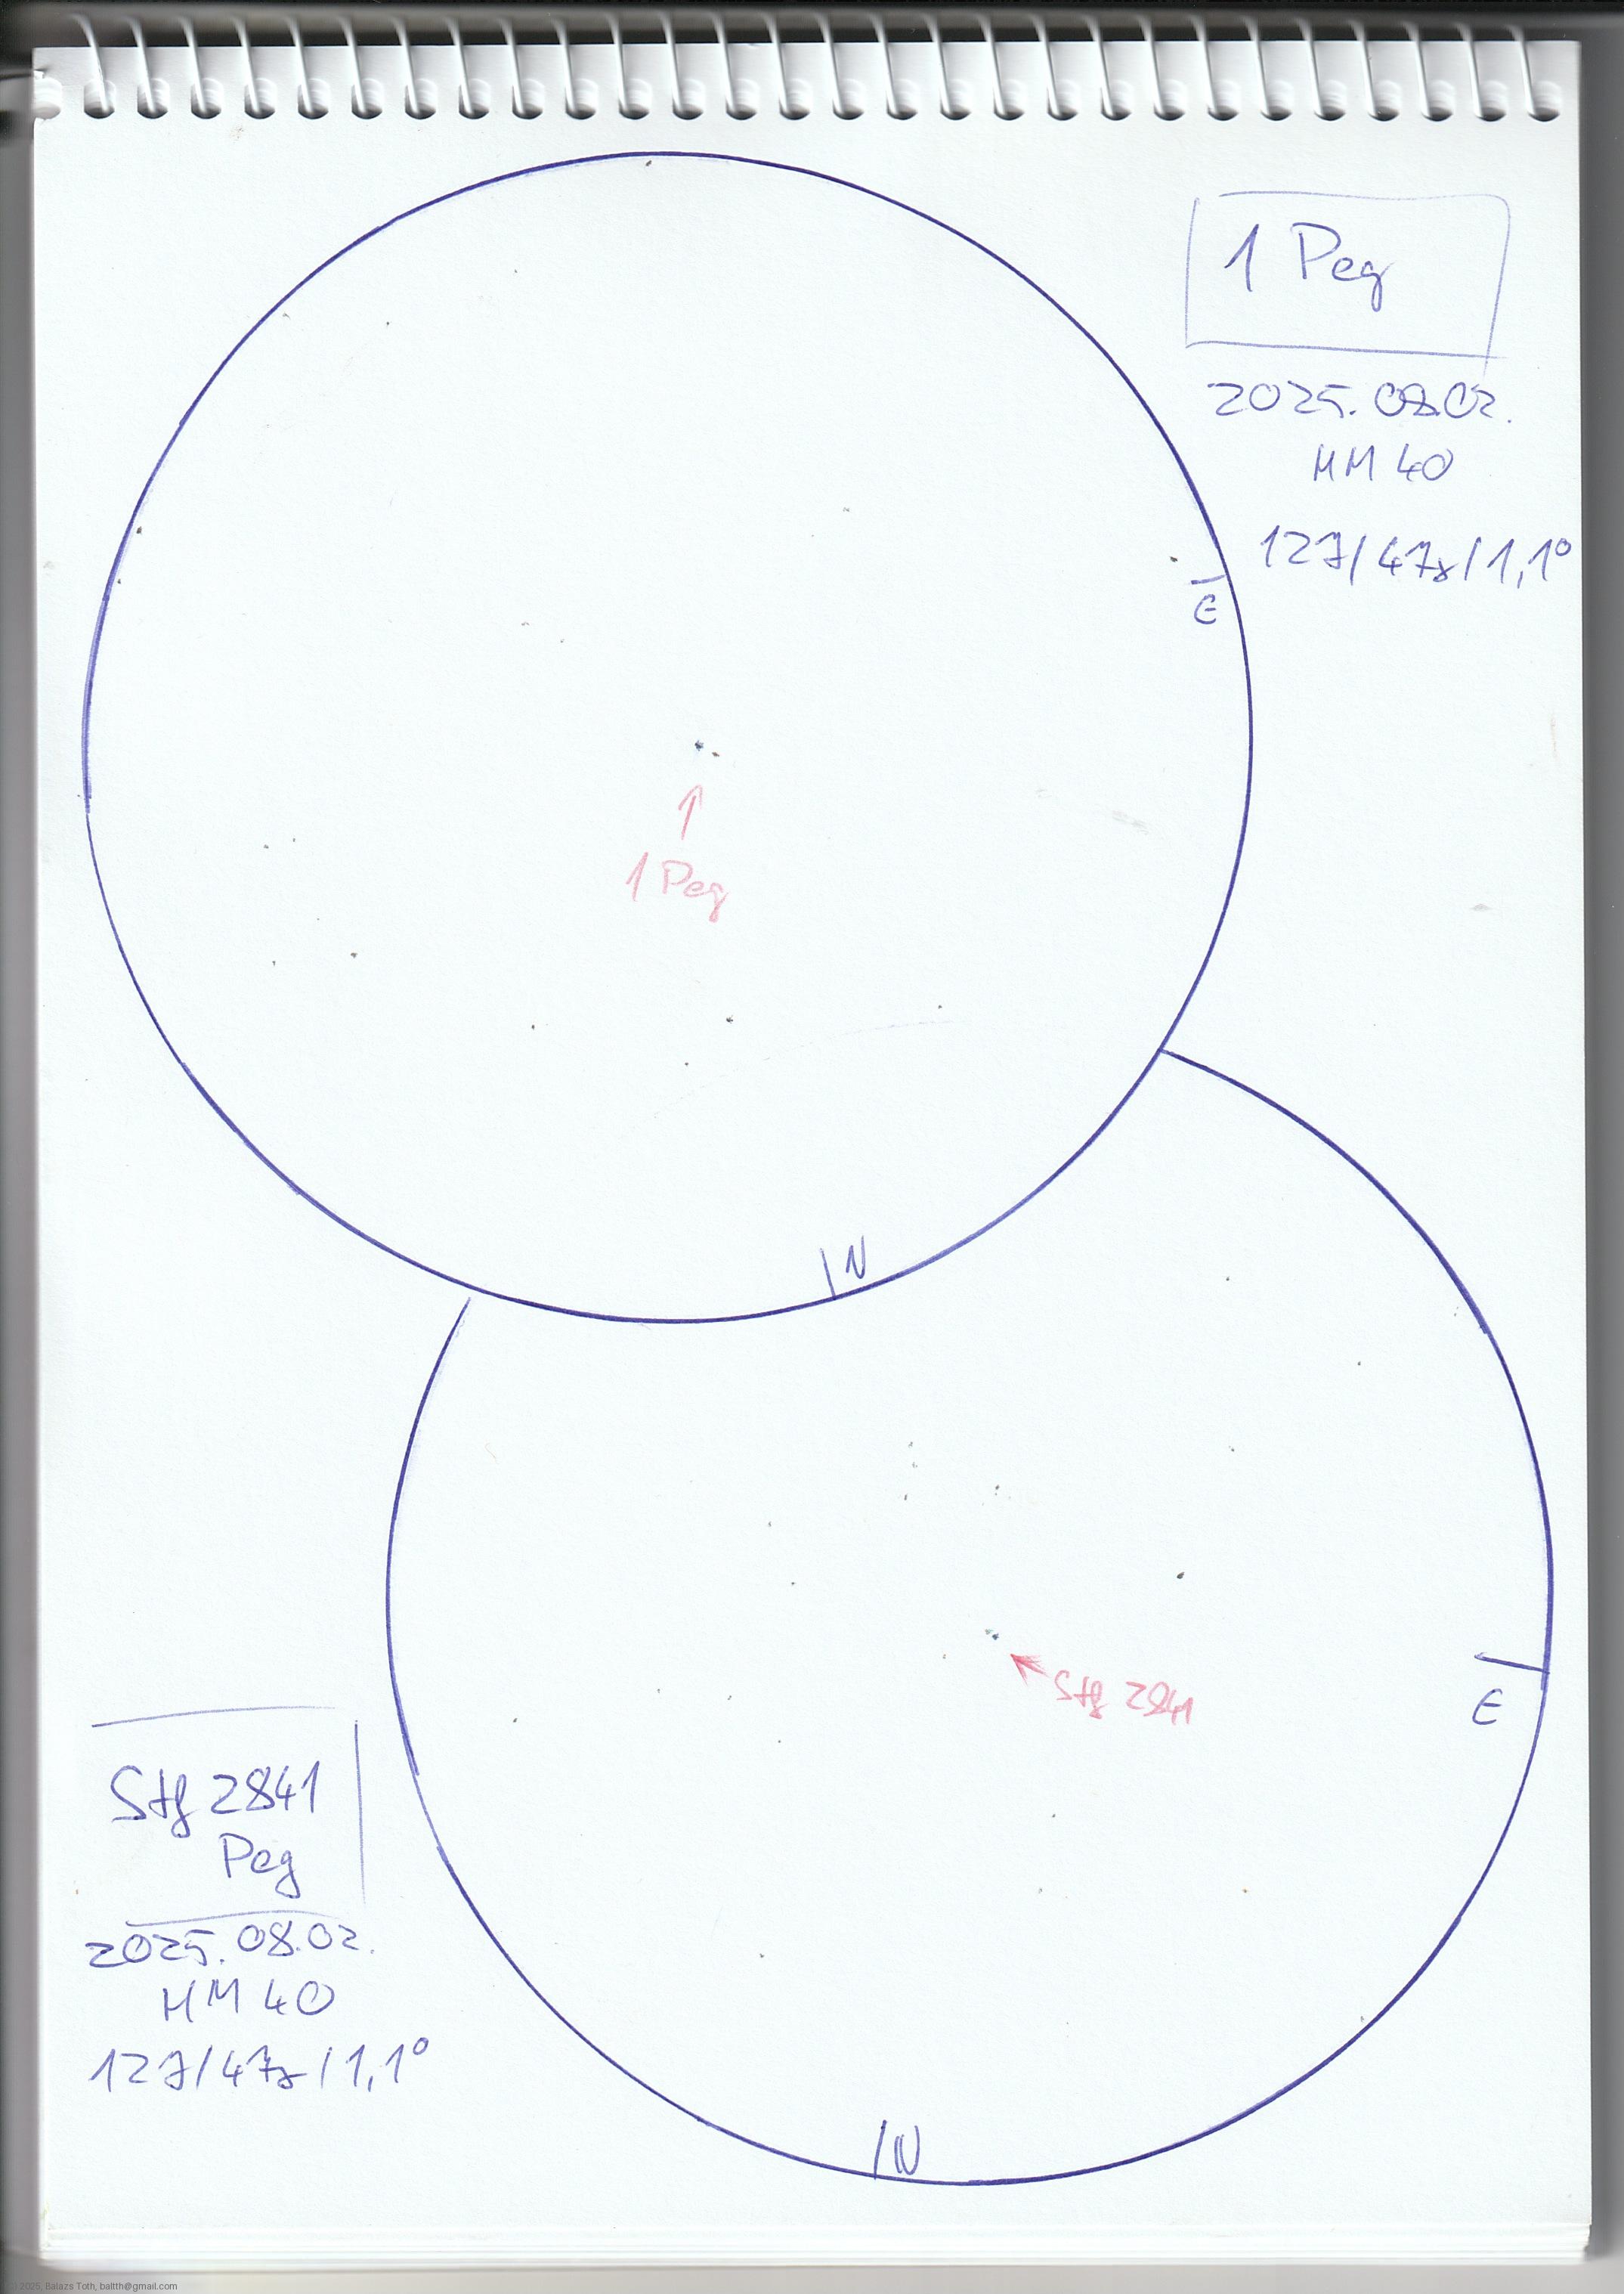 1 Peg
2025.08.02.
HM 40
127/47x/1,1°
E
1 Peg
N
Stf 2841
E
Stf 2841
Peg
2025.08.02.
HM 40
127/47x/1,1°
N
© 2025, Balazs Toth, baltth@gmail.com